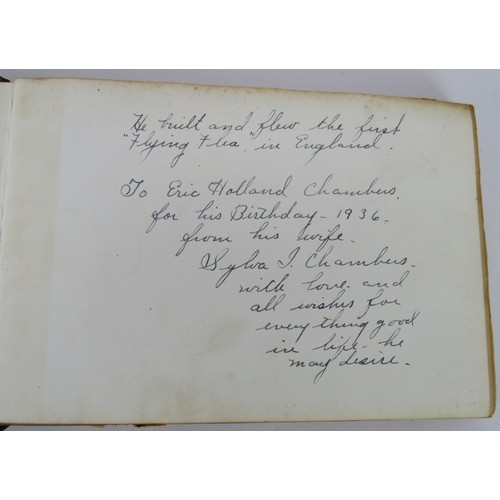 He built and flew the first
"Flying Flea", in England.
To Eric Holland Chambers,
for his Birthday - 1936.
from his wife.
Sylva I. Chambers.
with love and
all wishes for
everything good
in life - he
may desire.